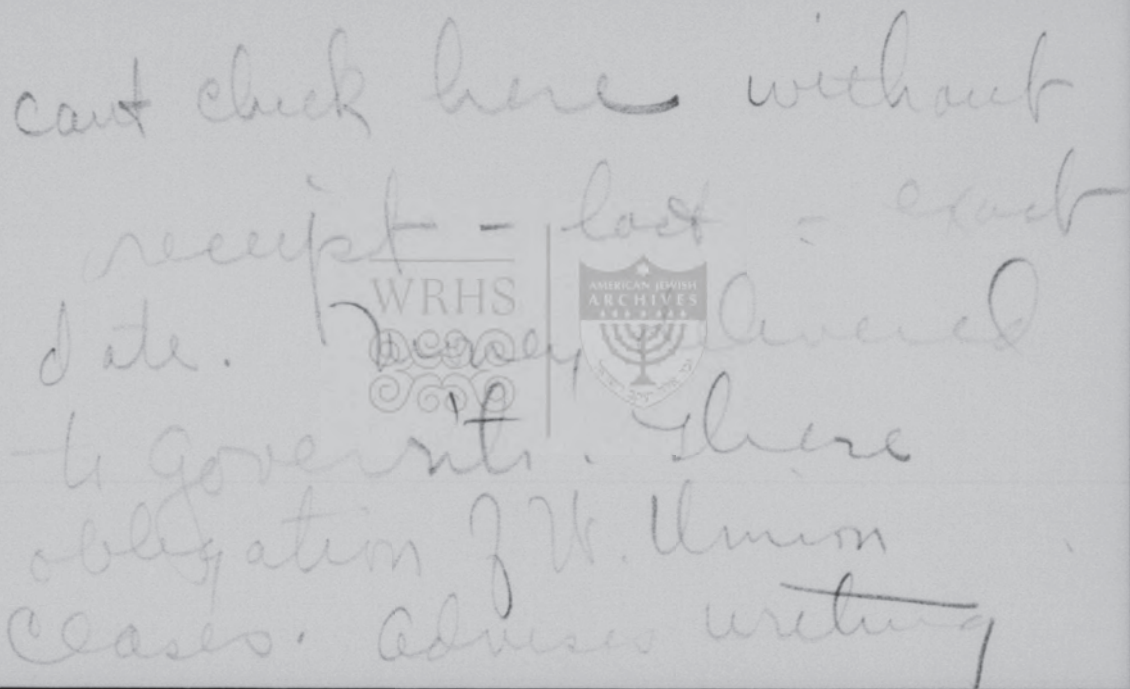 cant check here without
receipt - lost - exact
date. Money delivered
to Governm't. There
obligation of W. Union
ceases. Advises writing
WRHS
AMERICAN JEWISH
ARCHIVES